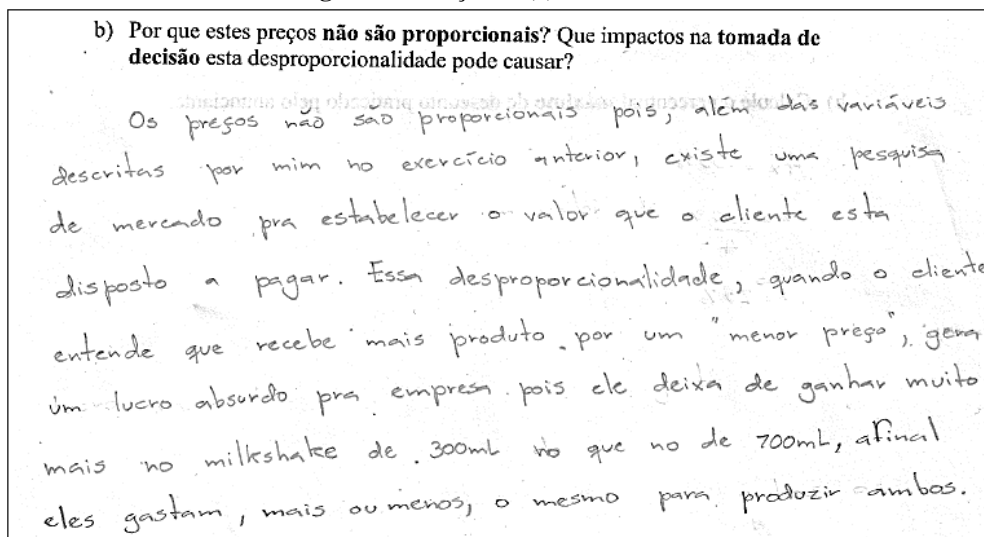 b) Por que estes preços não são proporcionais? Que impactos na tomada de
decisão esta desproporcionalidade pode causar?
Os preços não são proporcionais pois, além das variáveis
descritas por mim no exercício anterior, existe uma pesquisa
de mercado pra estabelecer o valor que o cliente esta
disposto a pagar. Essa desproporcionalidade, quando o cliente
entende que recebe mais produto por um "menor preço", gera
um lucro absurdo pra empresa pois ele deixa de ganhar muito
mais no milkshake de 300mL do que no de 700mL, afinal
eles gastam, mais ou menos, o mesmo para produzir ambos.